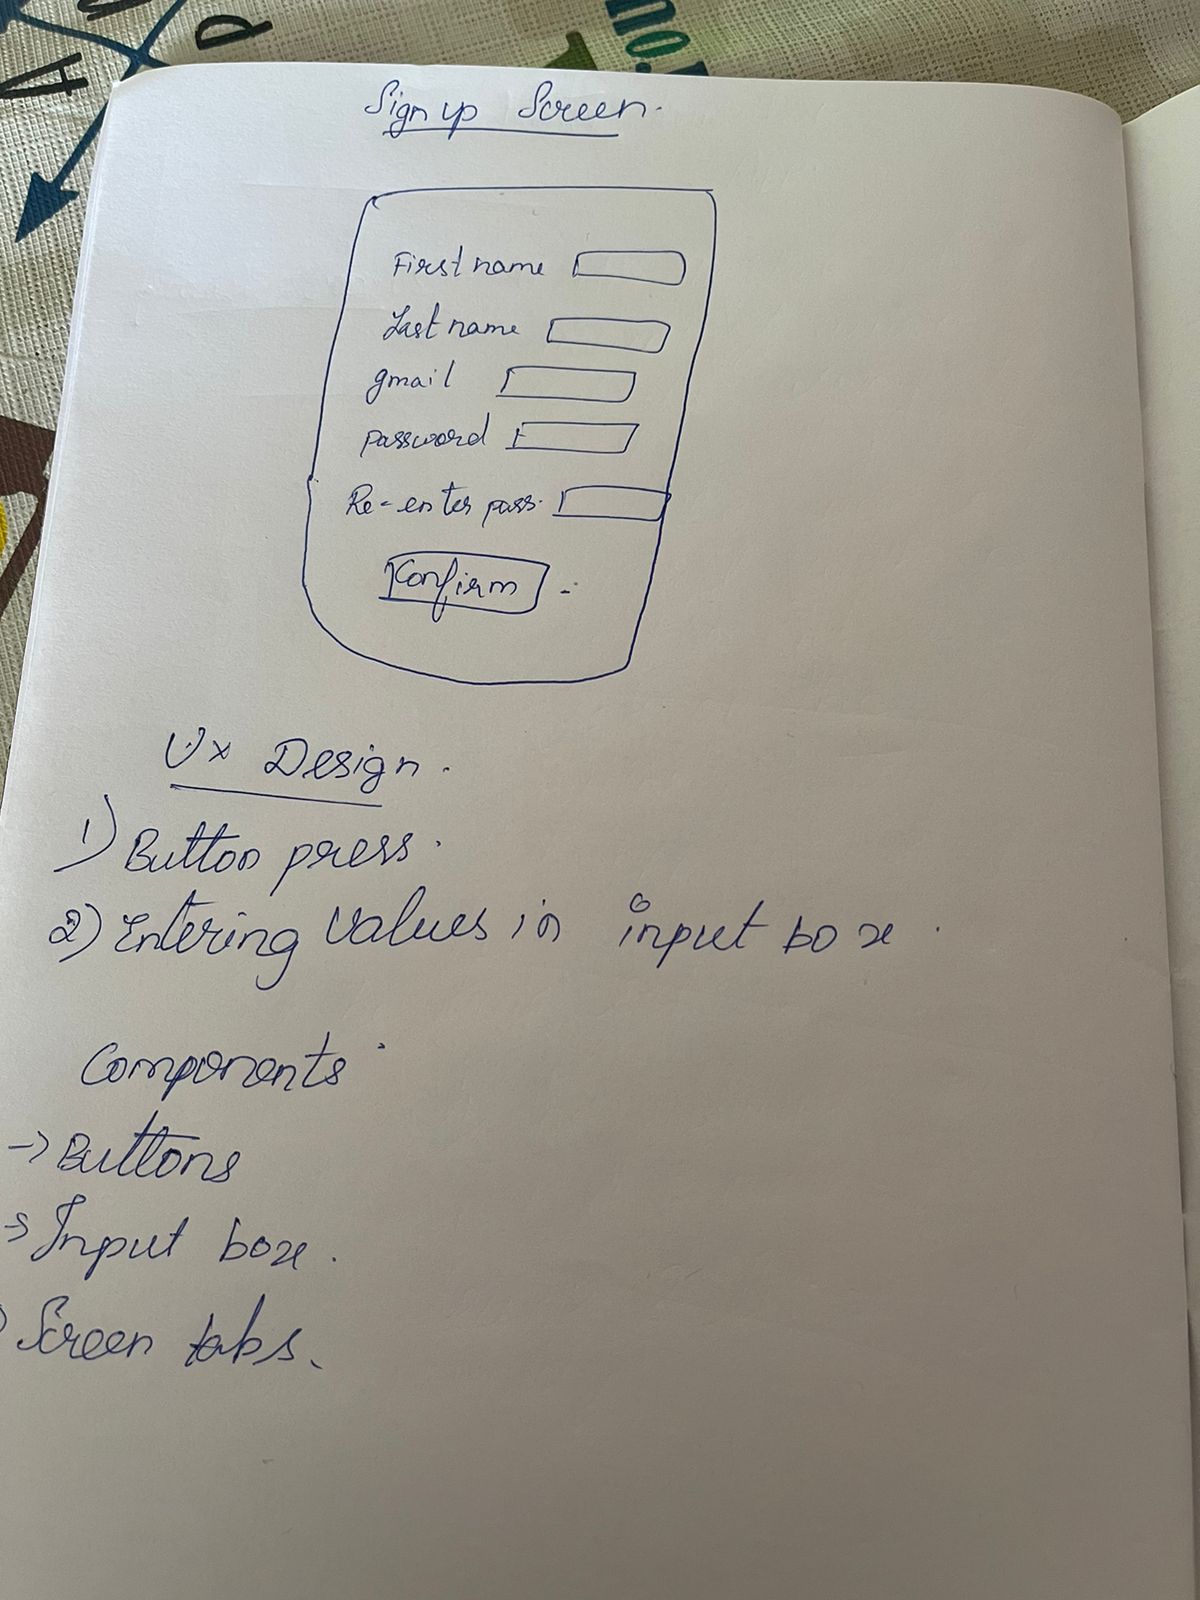 Sign up Screen.
First name
Last name
gmail
password
Re-enter pass.
Confirm
Ux Design.
1) Button press.
2) Entering values in input box.
Components
→ Buttons
→ Input box.
Screen tabs.